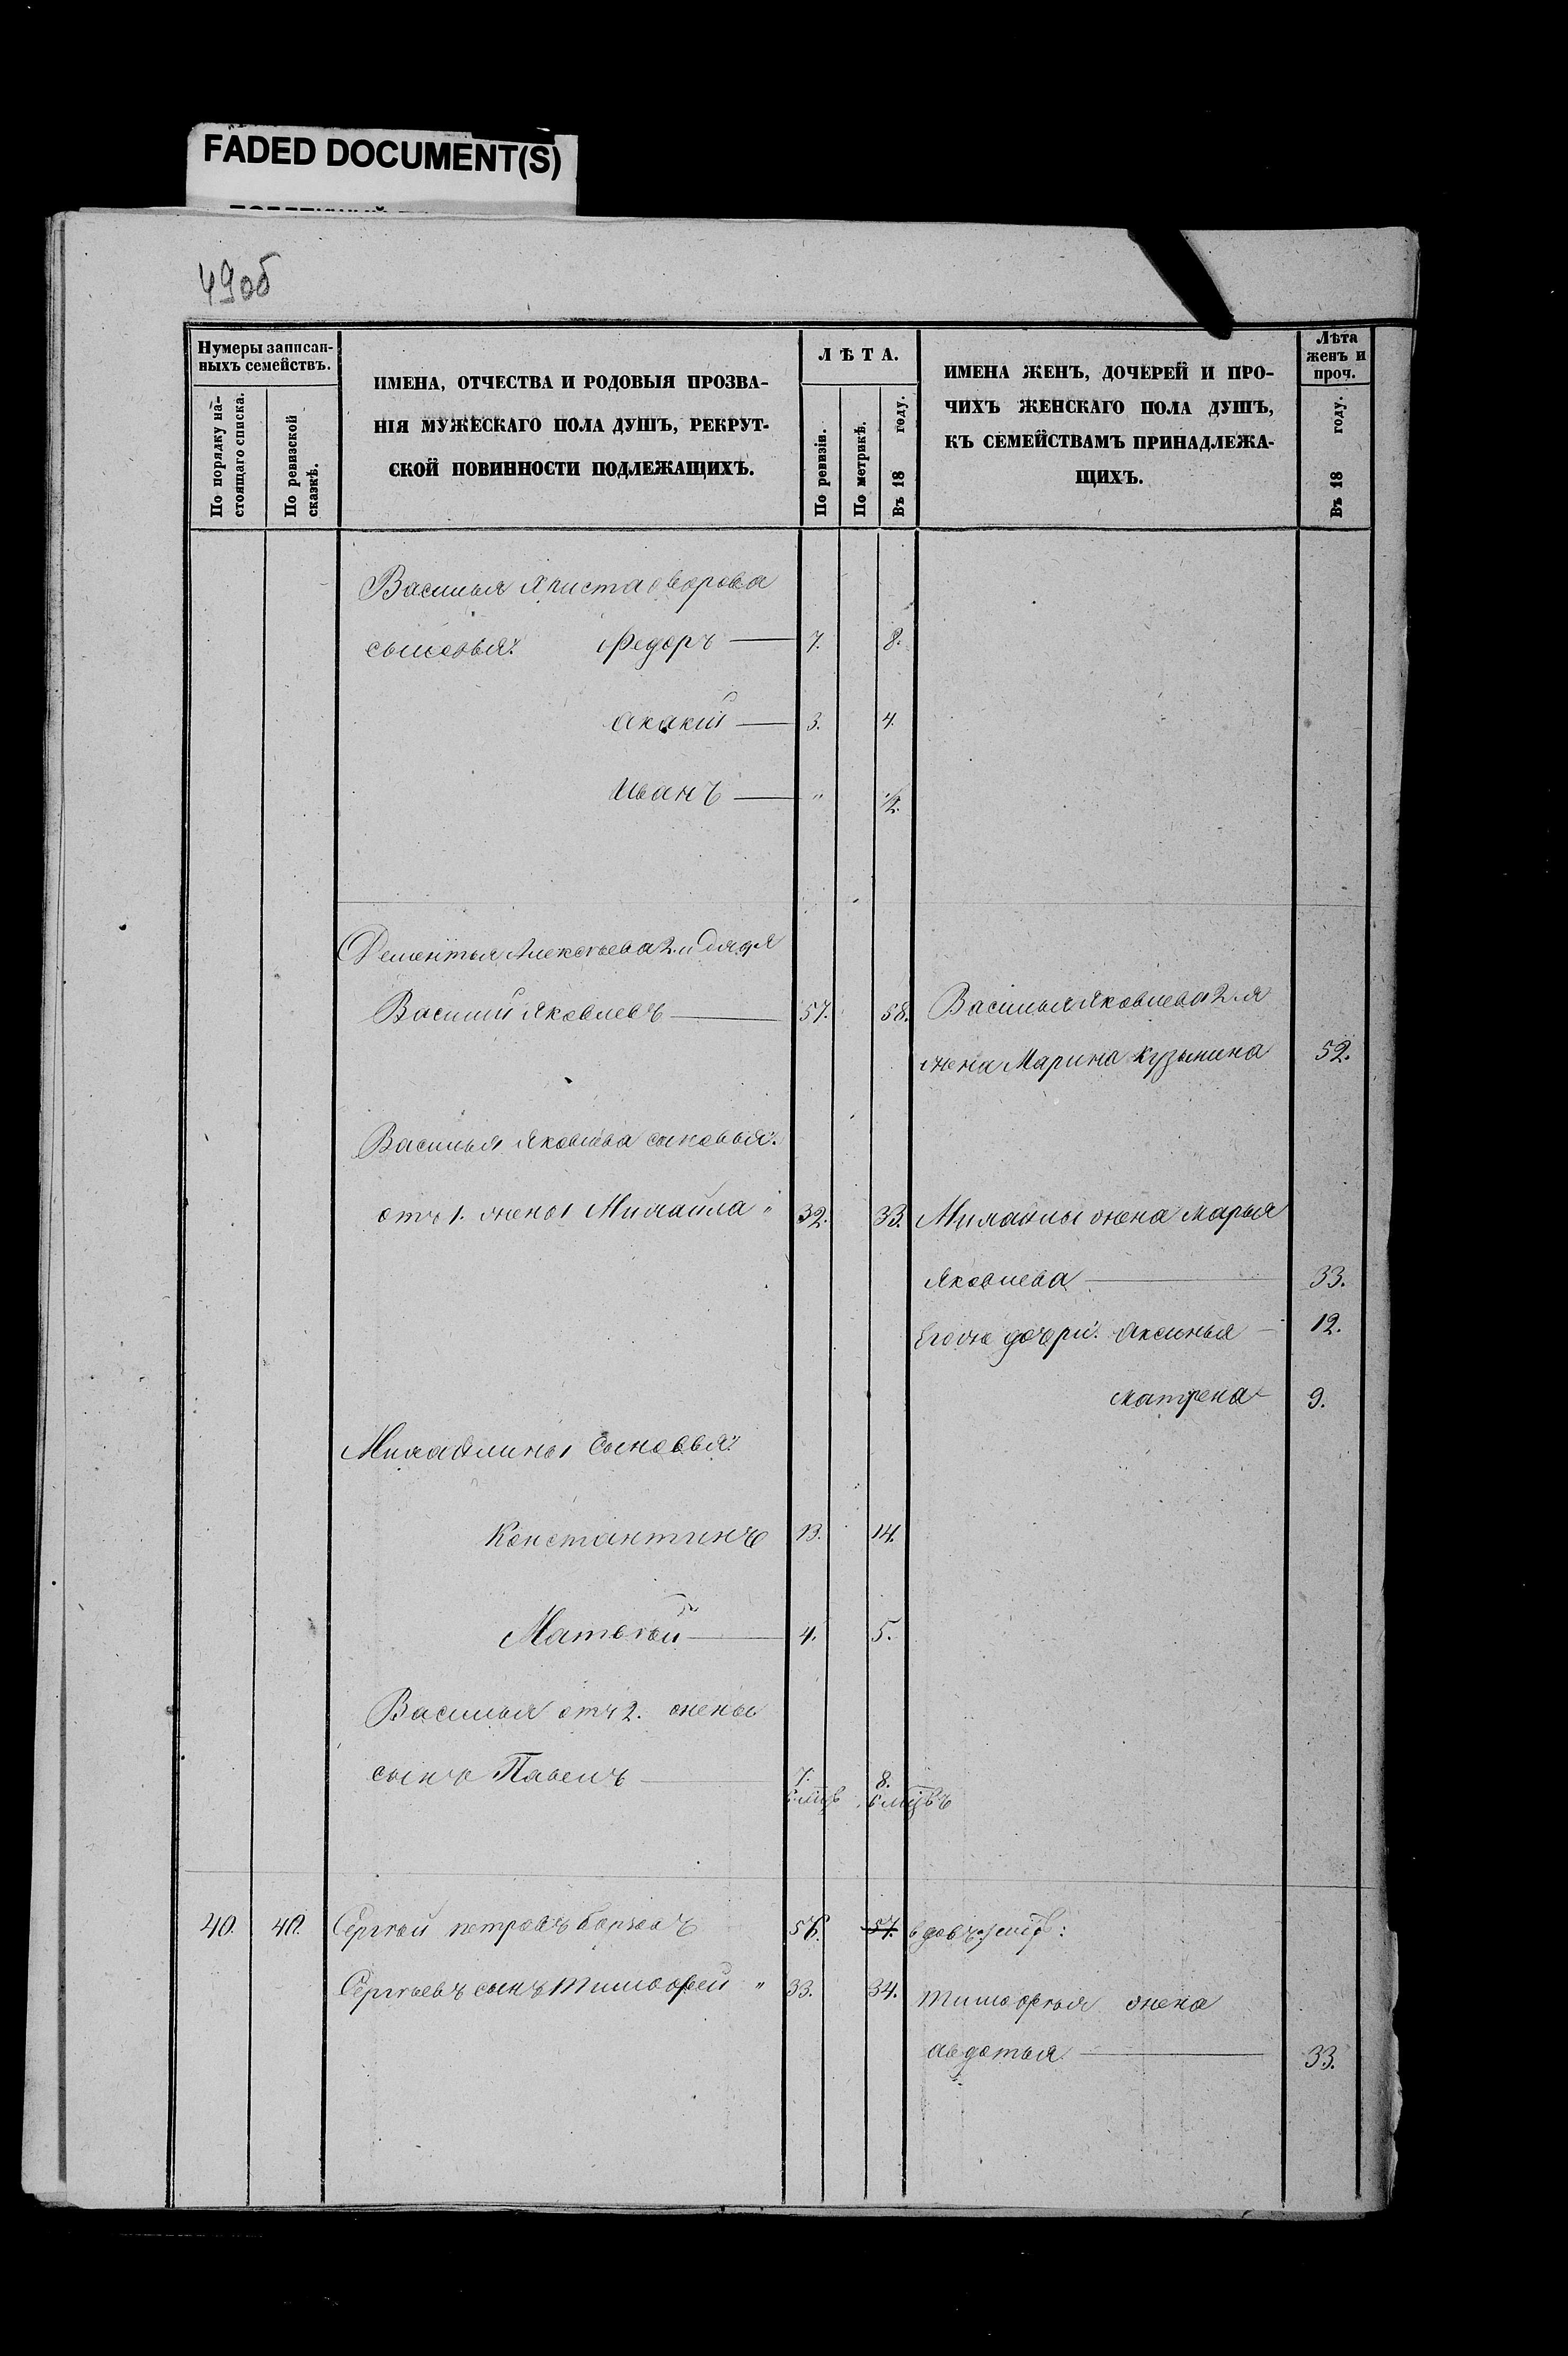 FADED DOCUMENT(S)
49об
Нумеры записан-
ныхъ семействъ.
По порядку на-
стоящаго списка.
По ревизской
сказкѣ.
ИМЕНА, ОТЧЕСТВА И РОДОВЫЯ ПРОЗВА-
НІЯ МУЖЕСКАГО ПОЛА ДУШЪ, РЕКРУТ-
СКОЙ ПОВИННОСТИ ПОДЛЕЖАЩИХЪ.
ЛѢТА.
По ревизіи.
По метрикѣ.
Въ 18 году.
ИМЕНА ЖЕНЪ, ДОЧЕРЕЙ И ПРО-
ЧИХЪ ЖЕНСКАГО ПОЛА ДУШЪ,
КЪ СЕМЕЙСТВАМЪ ПРИНАДЛЕЖА-
ЩИХЪ.
Лѣта
женъ и
проч.
Въ 18 году.
Василья Христофорова
сыновья: Федоръ — 7. 8.
Акакій — 3. 4.
Иванъ — " ½.
Дементья Алексѣева 2.й дядя
Василій Яковлевъ — 57. 58. Василья Яковлева 2.я
жена Марина Кузьмина 52.
Василья Яковлева сыновья:
отъ 1. жены Михайла " 32. 33. Михайлы жена Марья
Яковлева — 33.
Егоже дочери: Аксинья — 12.
Матрена — 9.
Михайлины сыновья:
Константинъ 13. 14.
Матвѣй — 4. 5.
Василья отъ 2. жены
сынъ Павелъ — 7. 8.
мцѣв мцѣвъ
40. 40. Сергѣй Петровъ 56. 57. вдовъ
Сергѣевъ сынъ Тимофей " 33. 34. Тимофѣя жена
Авдотья — 33.